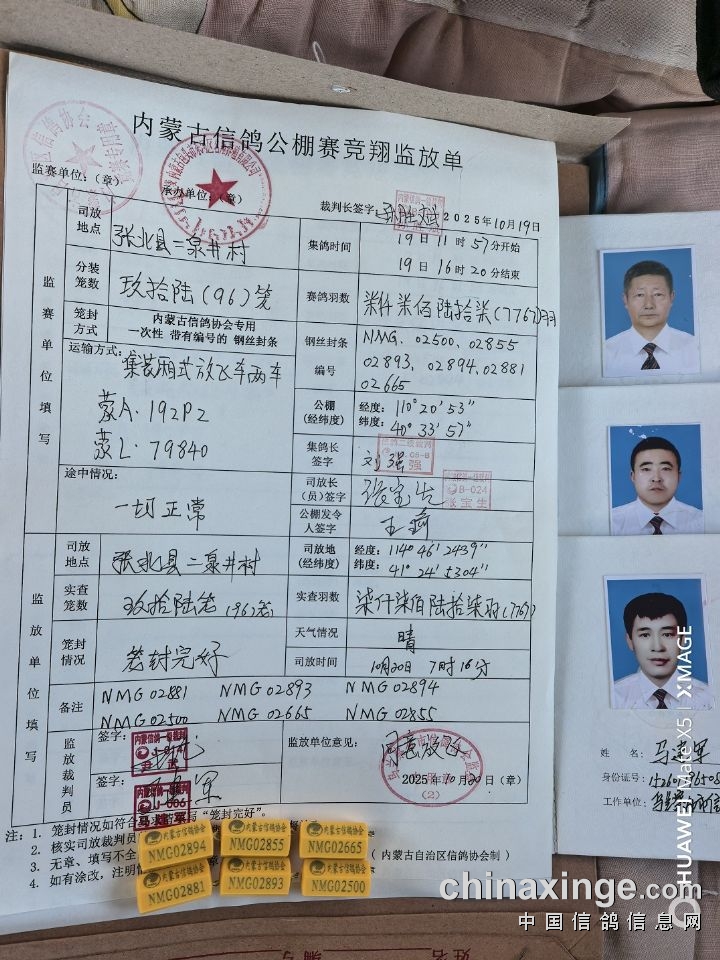 内蒙古信鸽公棚赛竞翔监放单
监赛单位：(章)
承办单位：(章)
裁判长签字：
2025年10月19日
监赛单位填写
司放地点
张北县二泉井村
集鸽时间
19日11时57分开始
19日16时20分结束
分装笼数
玖拾陆(96)笼
赛鸽羽数
柒仟柒佰陆拾柒(7767)羽
笼封方式
内蒙古信鸽协会专用
一次性 带有编号的 钢丝封条
钢丝封条编号
NMG、02500、02855
02893、02894、02881
02665
运输方式：
集装厢式放飞车两车
蒙A·192P2
蒙L·79840
公棚(经纬度)
经度：110°20'53"
纬度：40°33'57"
集鸽长签字
刘强
途中情况：
一切正常
司放长(员)签字
张宝生
B-024
张宝生
公棚发令人签字
监放单位填写
司放地点
张北县二泉井村
司放地(经纬度)
经度：114°46'2439"
纬度：41°24'5304"
实查笼数
玖拾陆笼(96)笼
实查羽数
柒仟柒佰陆拾柒羽(7767)
笼封情况
笼封完好
天气情况
晴
司放时间
10月20日 7时16分
备注
NMG02881 NMG02893 NMG02894
NMG02500 NMG02665 NMG02855
监放裁判员
签字：
签字：
J-006
马建军
监放单位意见：
同意放飞
2025年10月20日(章)
(2)
注：1. 笼封情况如符合
"笼封完好"。
2. 核实司放裁判员
3. 无章、填写不全
4. 如有涂改，注明情
(内蒙古自治区信鸽协会制)
内蒙古信鸽协会
NMG02894
内蒙古信鸽协会
NMG02855
内蒙古信鸽协会
NMG02665
内蒙古信鸽协会
NMG02881
内蒙古信鸽协会
NMG02893
内蒙古信鸽协会
NMG02500
姓名：马建军
身份证号：
工作单位：
HUAWEI Mate X5 | XMAGE
chinaxinge.com
中国信鸽信息网